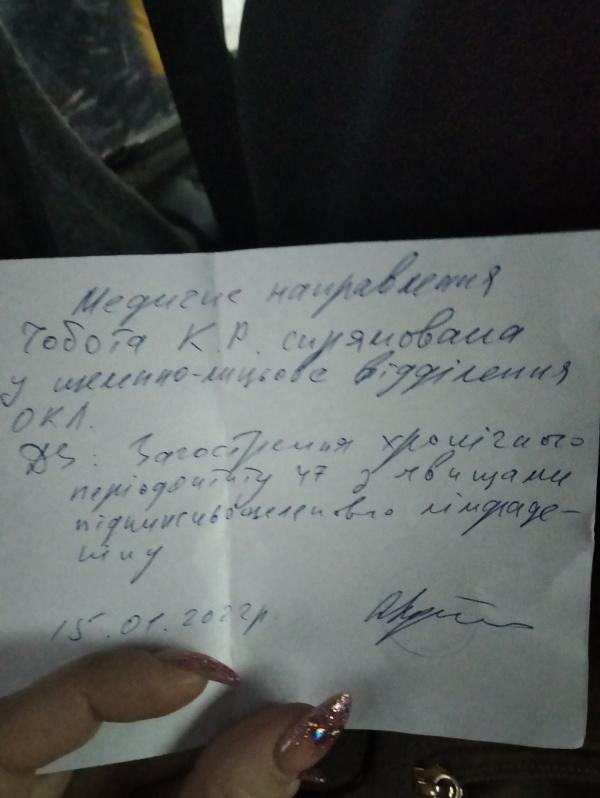 Медичне направлення
Чобота К.Р. спрямована
у щелепно-лицьове відділення
ОКЛ.
ДЗ: Загострення хронічного
періодонтиту 47 з явищами
лімфаде-
ніту
15.01.2022р.